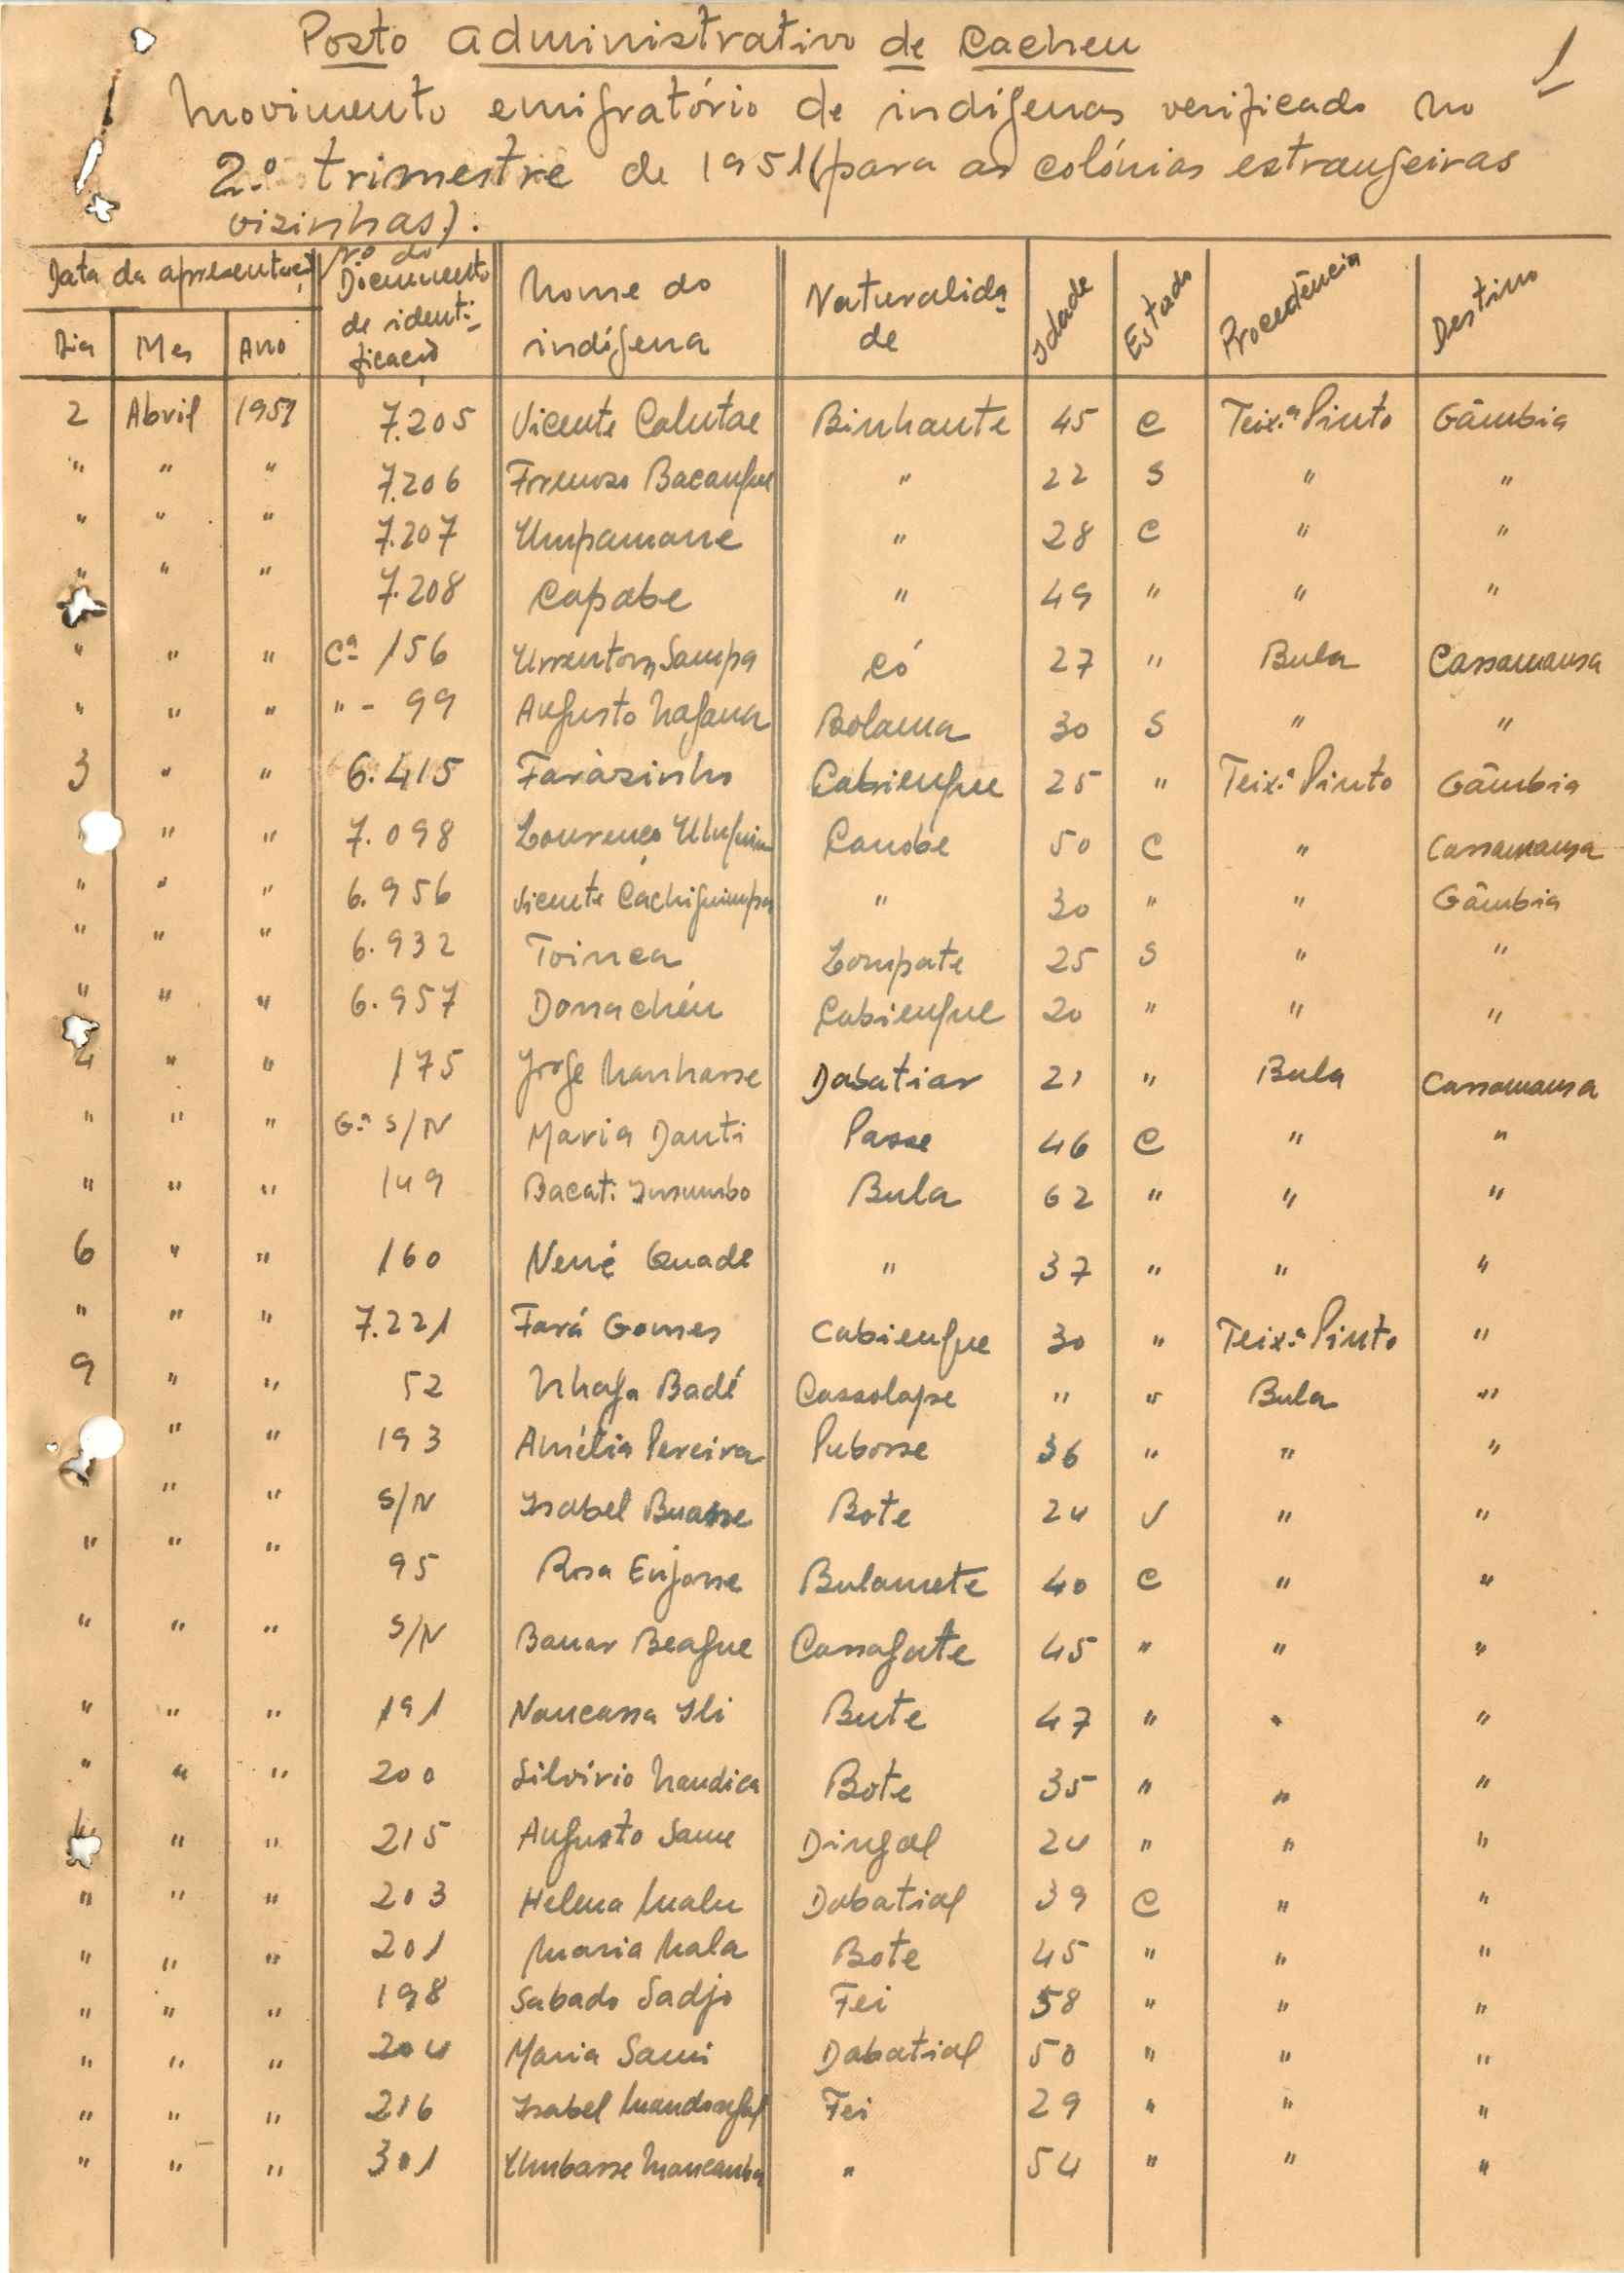 Posto administrativo de Cacheu
1
Movimento emigratório de indígenas verificado no
2.º trimestre de 1951 (para as colónias estrangeiras
vizinhas).
Data da apresentação | N.º do Documento de identificação | Nome do indígena | Naturalidade | Idade | Estado | Procedência | Destino
Dia | Mes | Ano
2 Abril 1951 7.205 Vicente Calutae Binhante 45 C Teix.ª Pinto Gâmbia
" " " 7.206 Formoso Bacangue " 22 S " "
" " " 7.207 Umpamane " 28 C " "
" " " 7.208 Capabe " 49 " " "
" " " Cª 156 Sampa Có 27 " Bula Cassamansa
" " " " - 99 Augusto Nagana Bolama 30 S " "
3 " " 6.415 Faràzinho Cabiengue 25 " Teix.ª Pinto Gâmbia
" " 7.098 Lourenço Canobe 50 C " Cassamansa
" " " 6.956 Vicente Cachiguimpa " 30 " " Gâmbia
" " " 6.932 Toinca Lompate 25 S " "
" " " 6.957 Donachéu Cabiengue 20 " " "
4 " " 175 Jorge Nanhasse Dabatiar 21 " Bula Cassamansa
" " " G.ª S/N Maria Danti Passe 46 C " "
" " " 149 Bacati Insumbo Bula 62 " " "
6 " " 160 Nené Quade " 37 " " "
" " " 7.221 Fará Gomes Cabiengue 30 " Teix.ª Pinto "
9 " " 52 Nhaga Badé Cassolape " " Bula "
" " 193 Amélia Pereira Puborse 36 " " "
" " " S/N Isabel Buasse Bote 24 V " "
" " " 95 Rosa Enjasse Bulamete 40 C " "
" " " S/N Banar Beague Cassagate 45 " " "
" " " 191 Nancassa Ili Bute 47 " " "
" " " 200 Silvírio Nandica Bote 35 " " "
" " 215 Augusto Same Dingal 24 " " "
" " " 203 Helena Malu Dabatial 39 C " "
" " " 201 Maria Mala Bote 45 " " "
" " " 198 Sabado Sadjo Fei 58 " " "
" " " 204 Maria Sami Dabatial 50 " " "
" " " 216 Isabel Fei 29 " " "
" " " 301 Umbasse Mancanha " 54 " " "